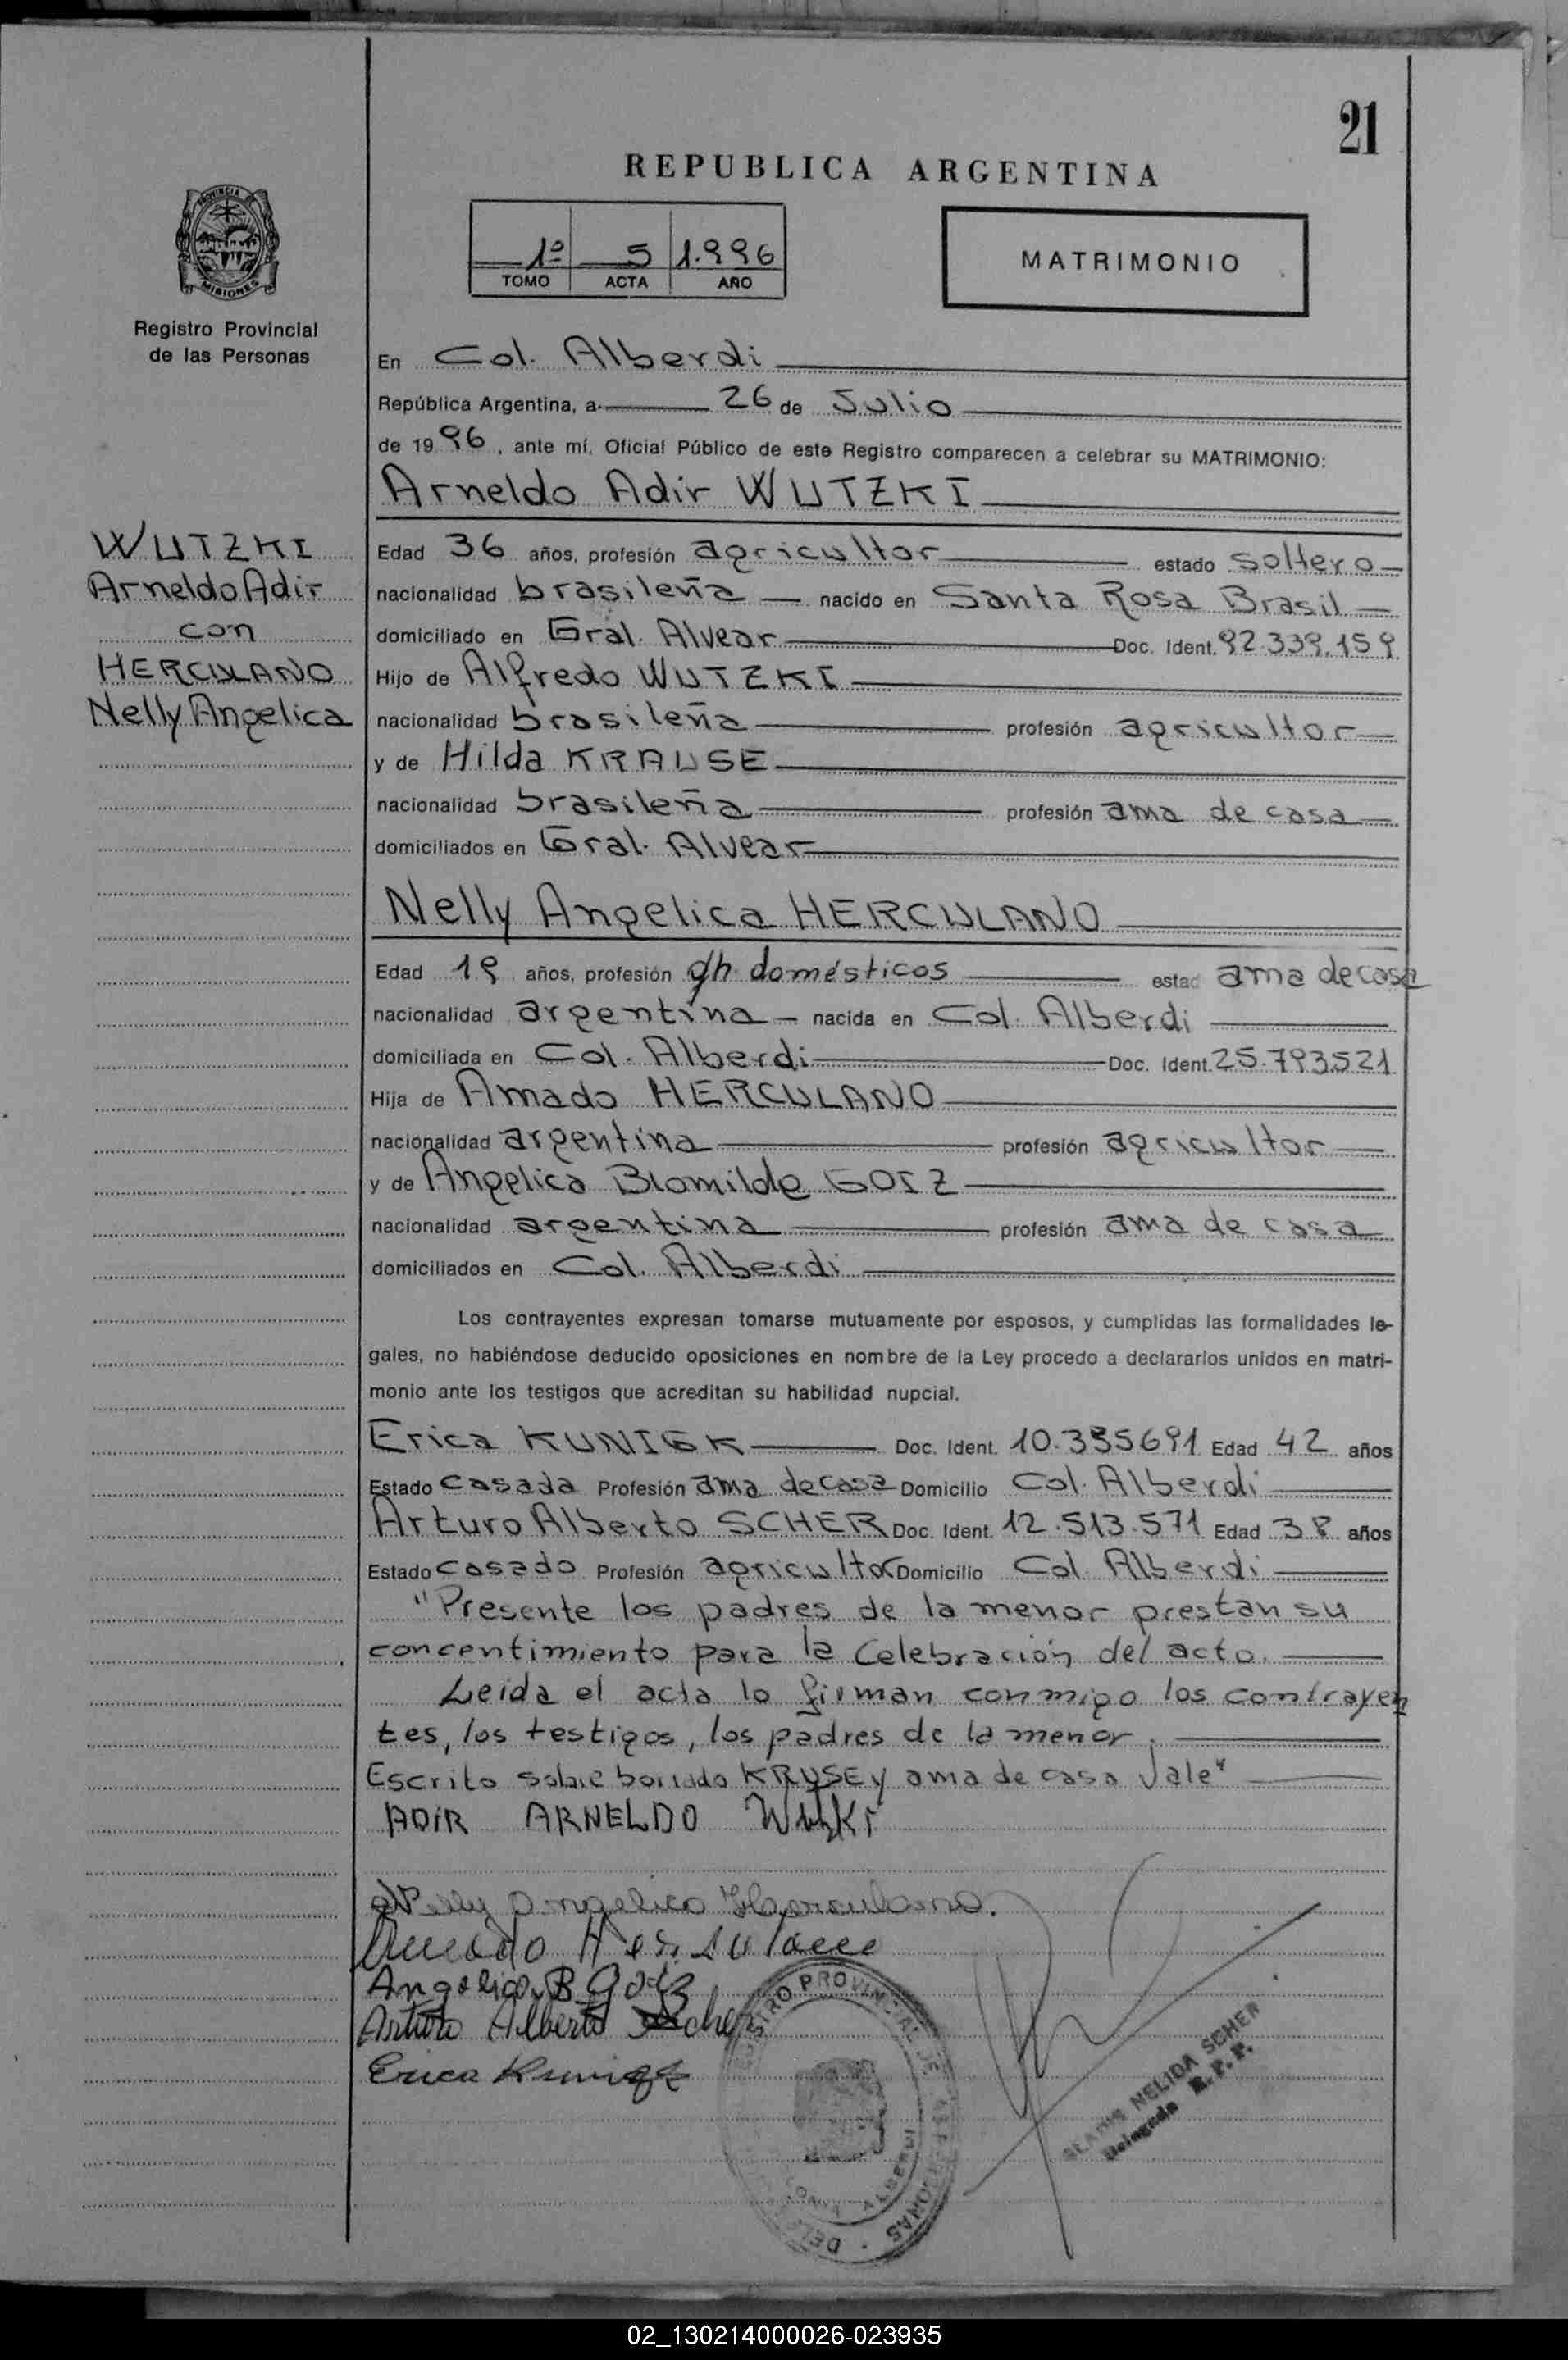 21
REPUBLICA ARGENTINA
1º 5 1.996
TOMO ACTA AÑO
MATRIMONIO
PROVINCIA
MISIONES
Registro Provincial
de las Personas
En Col. Alberdi
República Argentina, a 26 de Julio
de 1996, ante mí, Oficial Público de este Registro comparecen a celebrar su MATRIMONIO:
Arneldo Adir WUTZKI
WUTZKI
Arneldo Adir
con
HERCULANO
Nelly Angelica
Edad 36 años, profesión agricultor estado soltero
nacionalidad brasileña nacido en Santa Rosa Brasil
domiciliado en Gral. Alvear Doc. Ident. 92.339.159
Hijo de Alfredo WUTZKI
nacionalidad brasileña profesión agricultor
y de Hilda KRAUSE
nacionalidad brasileña profesión ama de casa
domiciliados en Gral. Alvear
Nelly Angelica HERCULANO
Edad 19 años, profesión q/h domésticos estad ama de casa
nacionalidad argentina nacida en Col. Alberdi
domiciliada en Col. Alberdi Doc. Ident. 25.793521
Hija de Amado HERCULANO
nacionalidad argentina profesión agricultor
y de Angelica Blomilda GOTZ
nacionalidad argentina profesión ama de casa
domiciliados en Col. Alberdi
Los contrayentes expresan tomarse mutuamente por esposos, y cumplidas las formalidades le-
gales, no habiéndose deducido oposiciones en nombre de la Ley procedo a declararlos unidos en matri-
monio ante los testigos que acreditan su habilidad nupcial.
Erica KUNIGK Doc. Ident. 10.335691 Edad 42 años
Estado casada Profesión ama de casa Domicilio Col. Alberdi
Arturo Alberto SCHER Doc. Ident. 12.513.571 Edad 38 años
Estado casado Profesión agricultor Domicilio Col. Alberdi
"Presente los padres de la menor prestan su
concentimiento para la Celebración del acto.
Leida el acta lo firman conmigo los contrayen
tes, los testigos, los padres de la menor.
Escrito sobre borrado KRUSE y ama de casa Vale"
ADIR ARNELDO Wutzki
Nelly Angelica Herculano.
Amado Herculano
Angelica B Gotz
Arturo Alberto Scher
Erica Kunigk
REGISTRO PROVINCIAL DE LAS PERSONAS
COLONIA ALBERDI
GLADIS NELIDA SCHER
Delegada R.P.P.
02_130214000026-023935